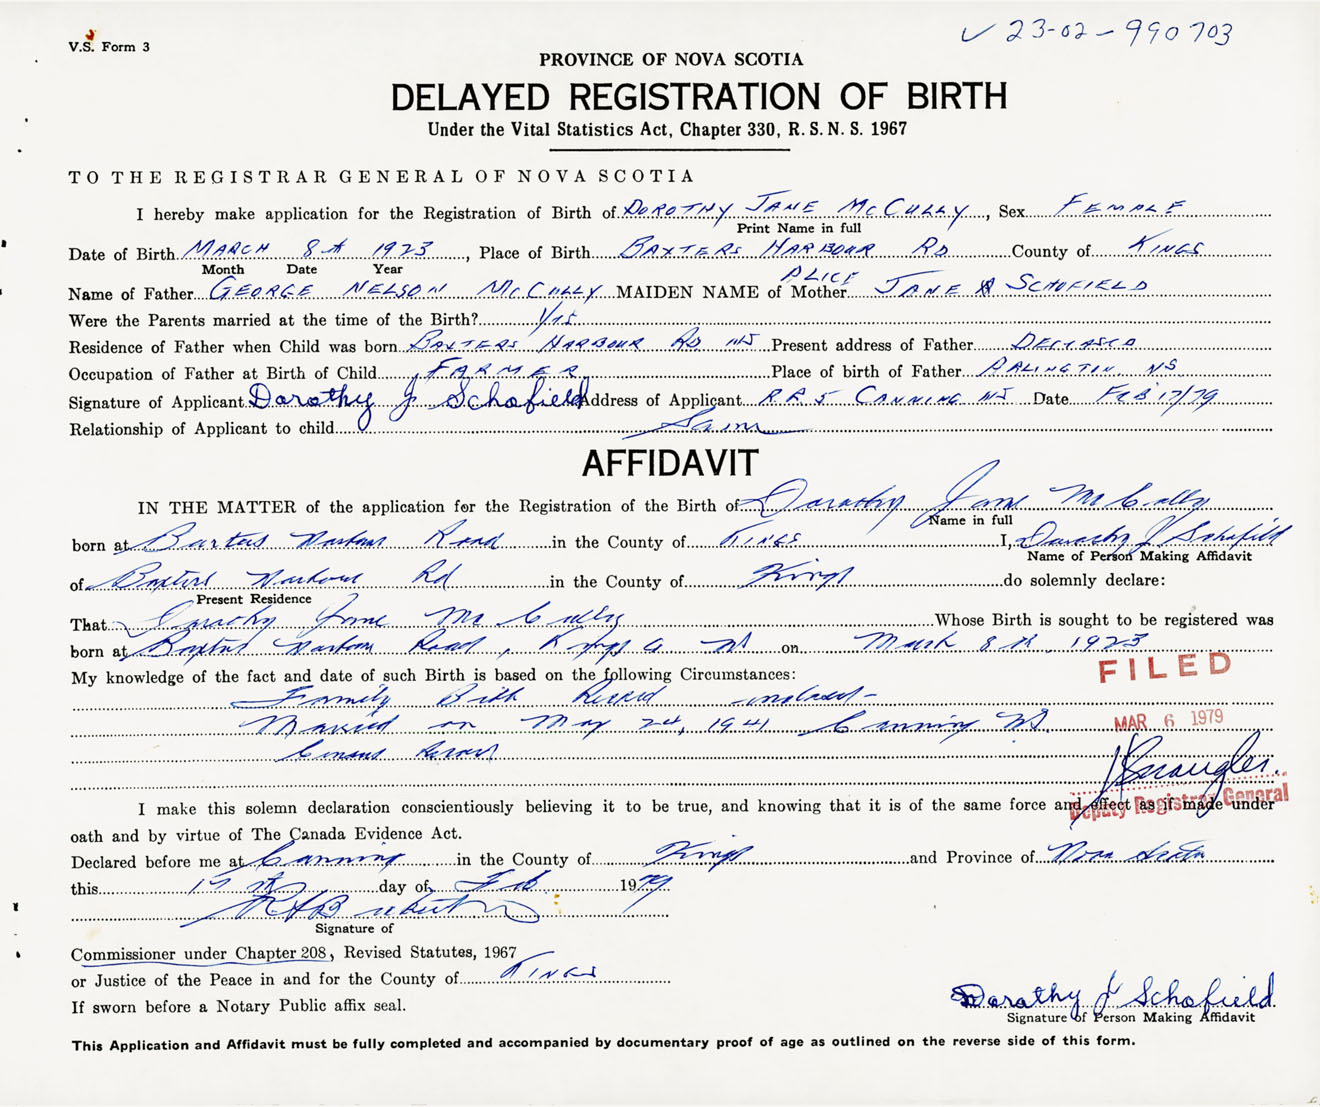 V.S. Form 3
✓ 23-02-990703
PROVINCE OF NOVA SCOTIA
DELAYED REGISTRATION OF BIRTH
Under the Vital Statistics Act, Chapter 330, R.S.N.S. 1967
TO THE REGISTRAR GENERAL OF NOVA SCOTIA
I hereby make application for the Registration of Birth of DOROTHY JANE MCCULLY, Sex FEMALE
Print Name in full
Date of Birth MARCH 8th 1923, Place of Birth BAXTERS HARBOUR RD County of KINGS
Month Date Year
ALICE
Name of Father GEORGE NELSON MCCULLY MAIDEN NAME of Mother JANE SCHOFIELD
Were the Parents married at the time of the Birth? YES
Residence of Father when Child was born BAXTERS HARBOUR RD NS Present address of Father DECEASED
Occupation of Father at Birth of Child FARMER Place of birth of Father ARLINGTON NS
Signature of Applicant Dorothy J Schofield Address of Applicant RR5 CANNING NS Date FEB 17/79
Relationship of Applicant to child Same
AFFIDAVIT
IN THE MATTER of the application for the Registration of the Birth of Dorothy Jane McCully
Name in full
born at Baxters Harbour Road in the County of KINGS I, Dorothy J Schofield
Name of Person Making Affidavit
of Baxters Harbour Rd in the County of Kings do solemnly declare:
Present Residence
That Dorothy Jane McCully Whose Birth is sought to be registered was
born at Baxters Harbour Road, Kings Co NS on March 8th, 1923
My knowledge of the fact and date of such Birth is based on the following Circumstances:
FILED
Family Birth Record enclosed-
Married on May 24, 1941 Canning NS.
MAR 6 1979
Census Record
I make this solemn declaration conscientiously believing it to be true, and knowing that it is of the same force and effect as if made under
Deputy Registrar General
oath and by virtue of The Canada Evidence Act.
Declared before me at Canning in the County of Kings and Province of Nova Scotia
this 17th day of Feb 1979
Signature of
Commissioner under Chapter 208, Revised Statutes, 1967
or Justice of the Peace in and for the County of KINGS
If sworn before a Notary Public affix seal.
Dorothy J Schofield
Signature of Person Making Affidavit
This Application and Affidavit must be fully completed and accompanied by documentary proof of age as outlined on the reverse side of this form.